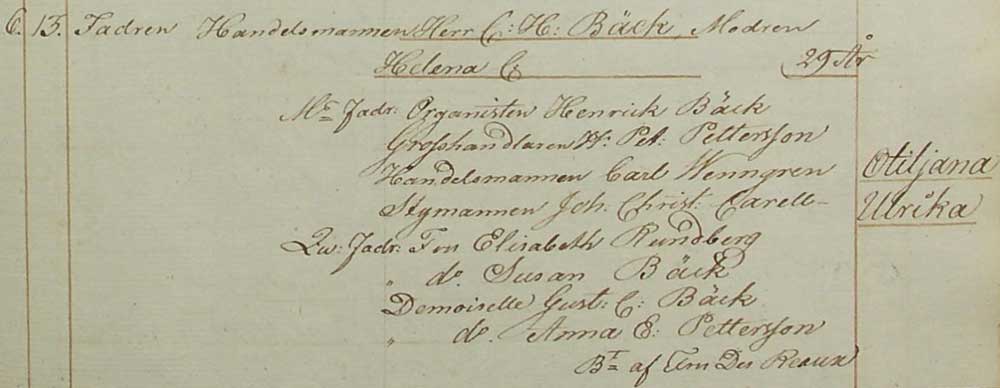 6. 13. Fadren Handelsmannen Herr C: H: Bäck, Modren
Helena C: 29 År
Mc Fadr: Organisten Henrick Bäck
Grosshandlaren H: Pet: Pettersson
Handelsmannen Carl Wenngren
Otiljana
Styrmannen Joh: Christ: Carell
Ulrika
Qw: Fadr: Fru Elisabeth Rundberg
" do Susan Bäck
Demoiselle Gust: C: Bäck
" do Anna E: Pettersson
Bt af Em Des Reaux